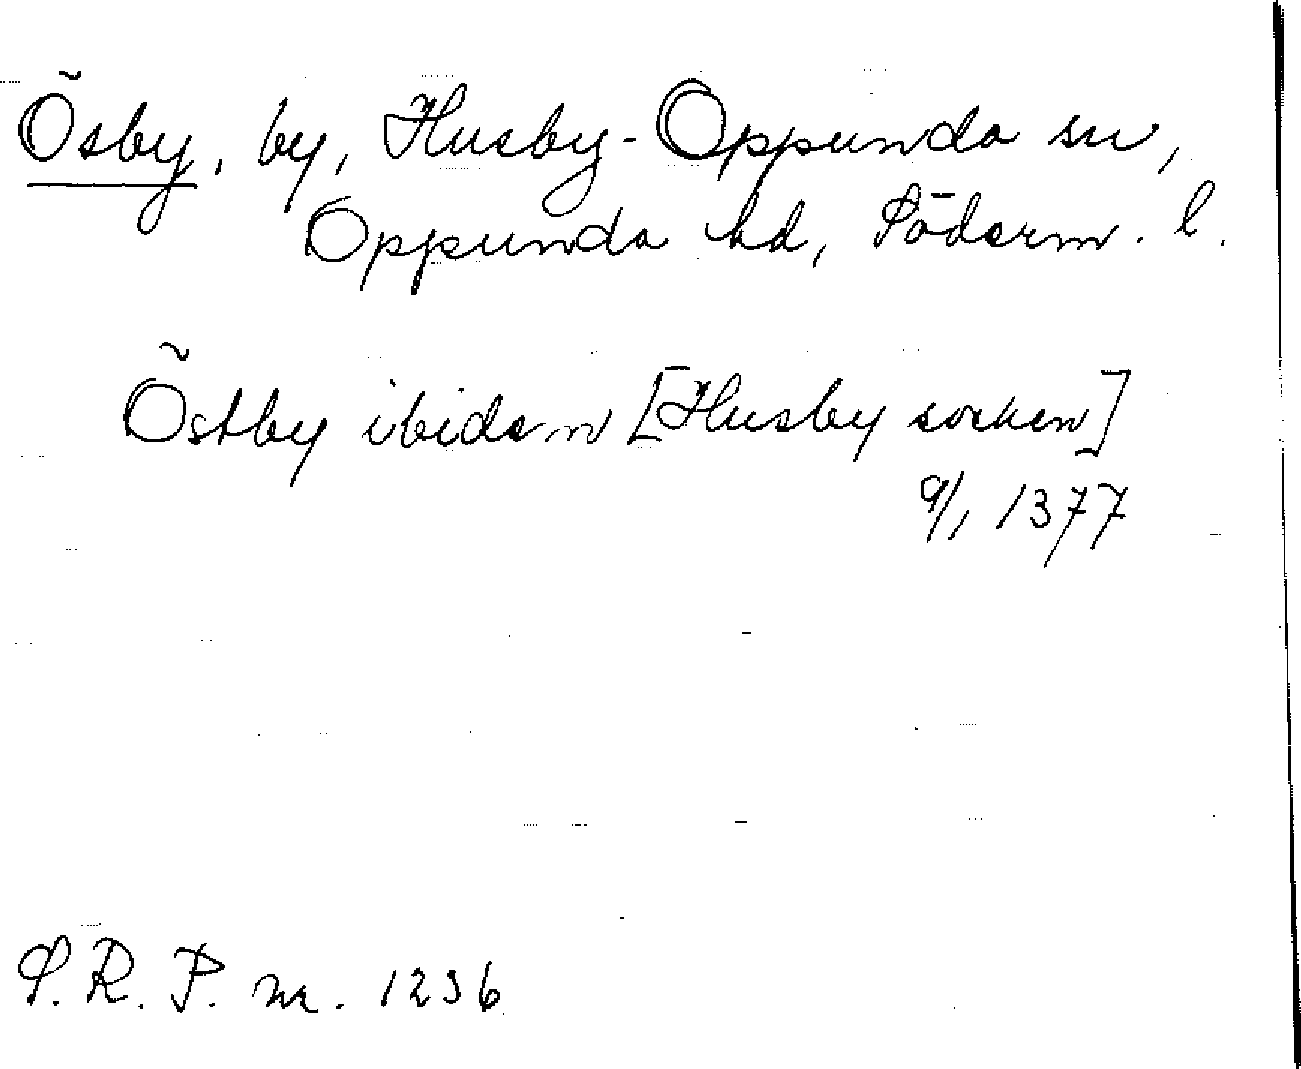 Ösby, by, Husby-Oppunda sn,
Oppunda hd, Söderm. l.
Östby ibidem [Husby socken]
9/1 1377
S.R.P. nr. 1236